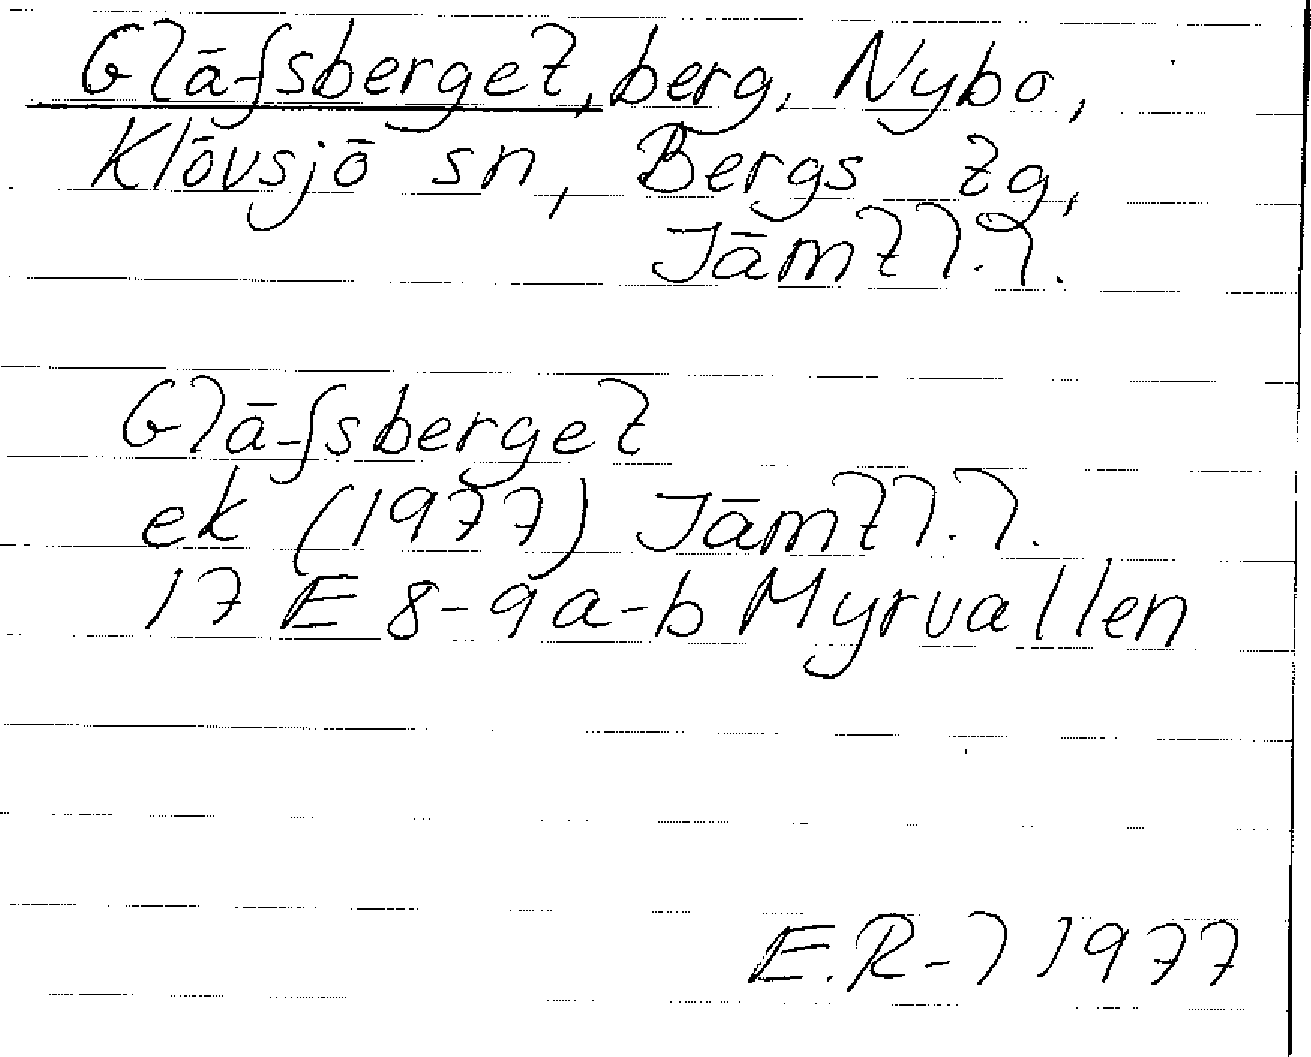 Gläfsberget, berg, Nybo,
Klövsjö sn, Bergs tg,
Jämtl.l.
Gläfsberget
ek (1977) Jämtl.l.
17 E 8-9 a-b Myrvallen
E.R-l 1977